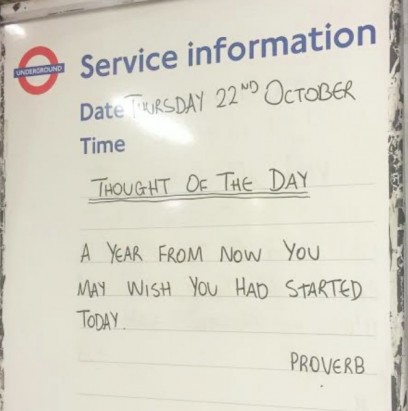 UNDERGROUND
Service information
Date THURSDAY 22ND OCTOBER
Time
THOUGHT OF THE DAY
A YEAR FROM NOW YOU
MAY WISH YOU HAD STARTED
TODAY.
PROVERB